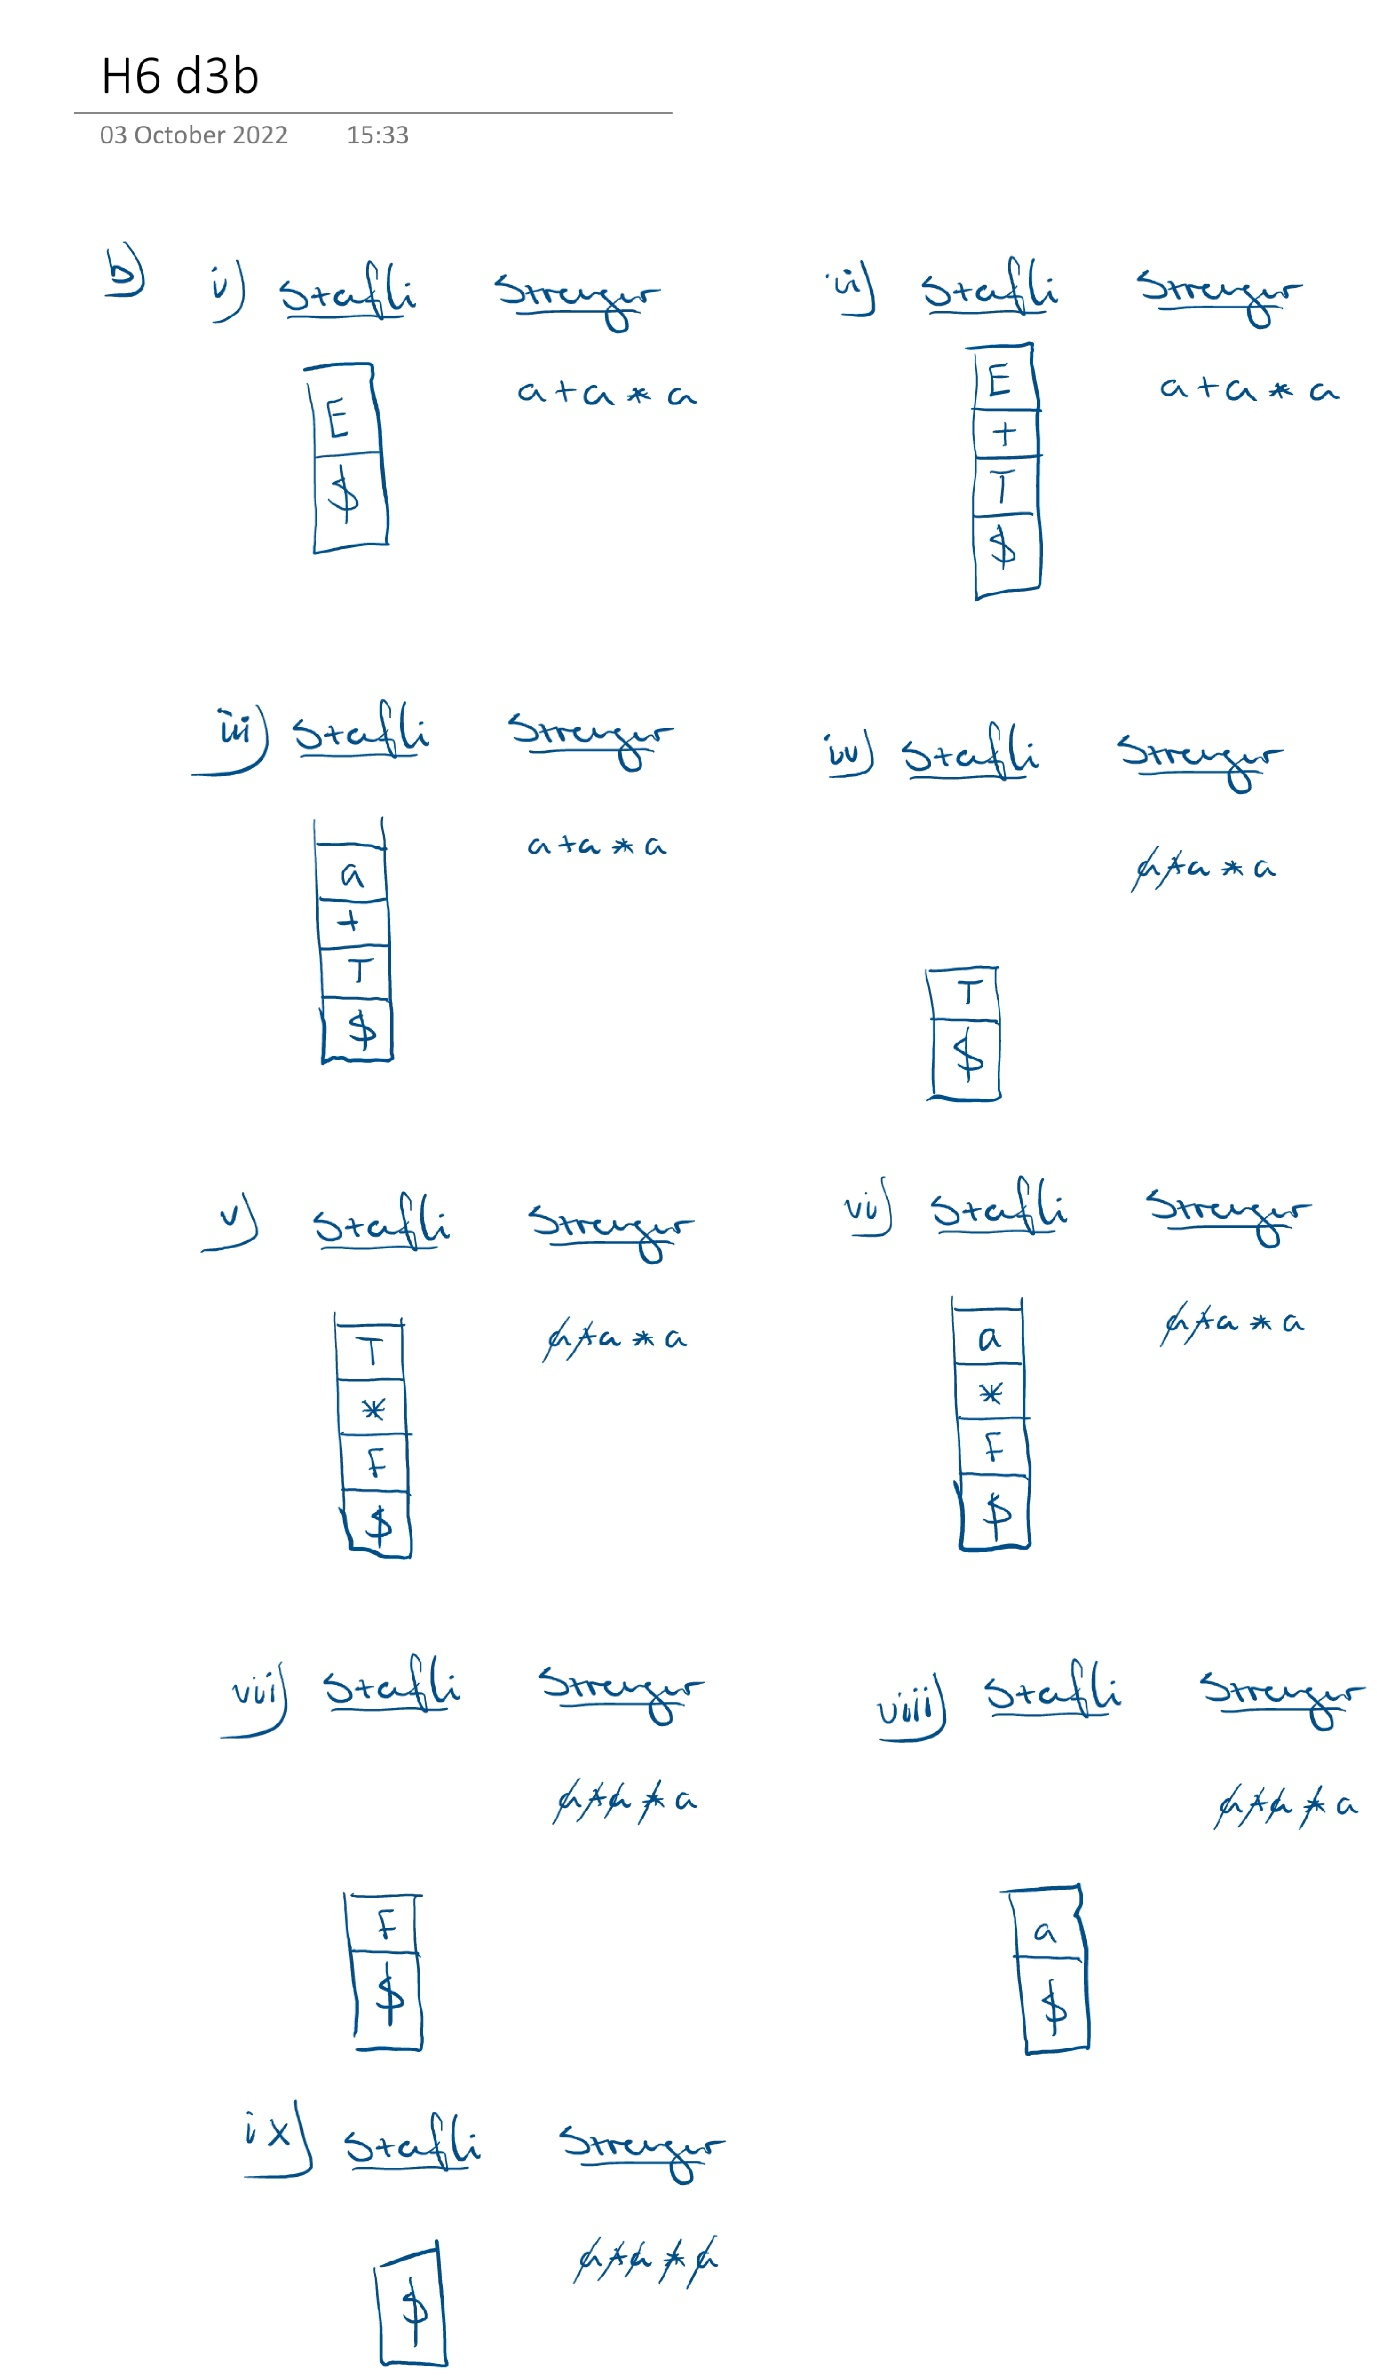 H6 d3b
03 October 2022 15:33
b) i) Stafli Strengur
a+a*a
E
$
ii) Stafli Strengur
a+a*a
E
+
T
$
iii) Stafli Strengur
a+a*a
a
+
T
$
iv) Stafli Strengur
a+a*a
T
$
v) Stafli Strengur
a+a*a
T
*
F
$
vi) Stafli Strengur
a+a*a
a
*
F
$
vii) Stafli Strengur
a+a*a
F
$
viii) Stafli Strengur
a+a*a
a
$
ix) Stafli Strengur
a+a*a
$